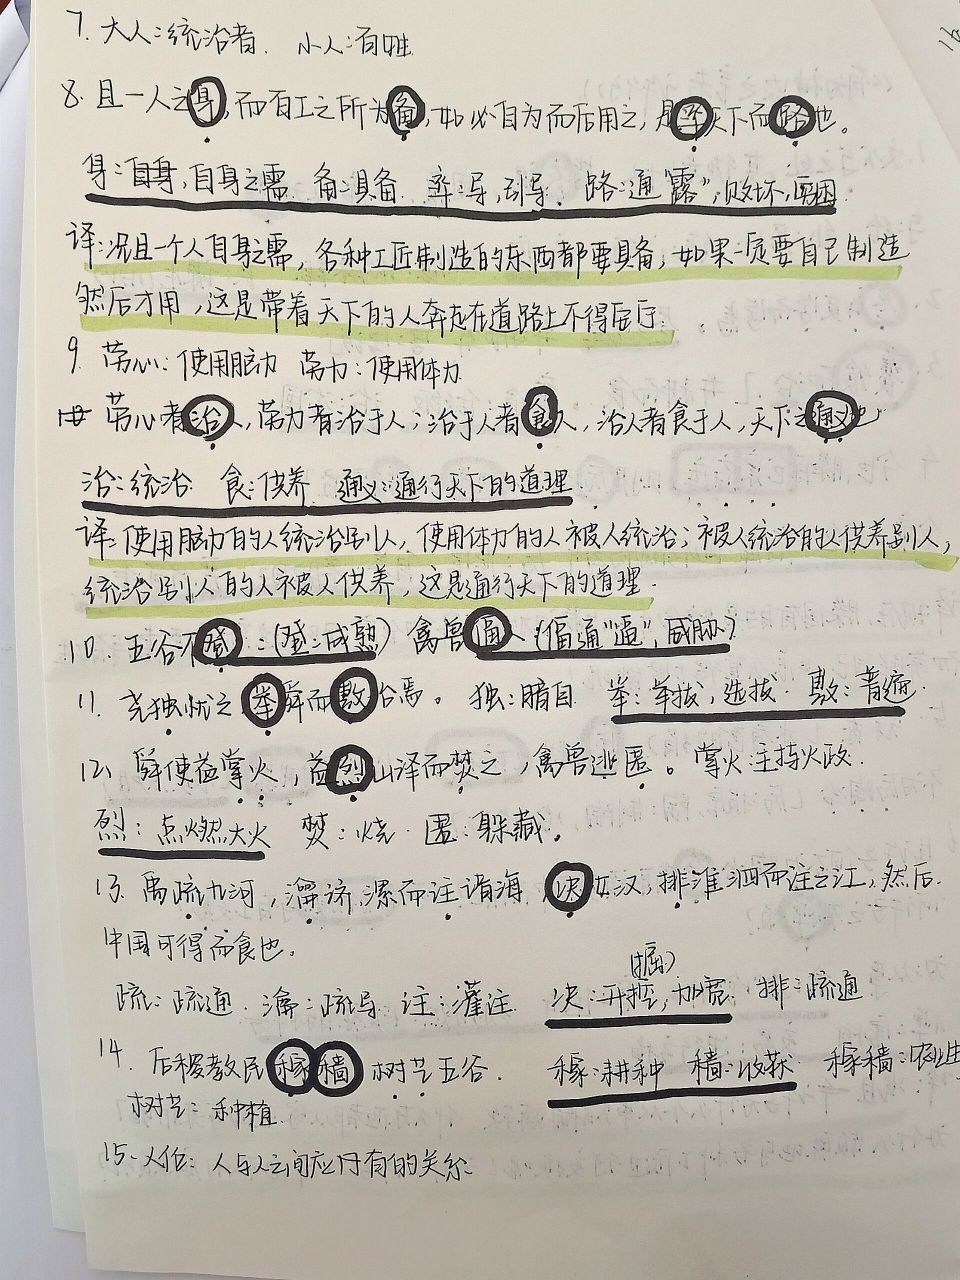 7. 大人：统治者. 小人：百姓
8. 且一人之身，而百工之所为备，如必自为而后用之，是率天下而路也。
身：自身，自身之需. 备：具备. 率：导，引导. 路：通“露”，败坏，羸困
译：况且一个人自身之需，各种工匠制造的东西都要具备，如果一定要自己制造
然后才用，这是带着天下的人奔走在道路上不得居宁.
9. 劳心：使用脑力 劳力：使用体力
劳心者治人，劳力者治于人；治于人者食人，治人者食于人，天下之通义也
治：统治 食：供养 通义：通行天下的道理
译：使用脑力的人统治别人，使用体力的人被人统治；被人统治的人供养别人，
统治别人的人被人供养，这是通行天下的道理.
10. 五谷不登：(登：成熟) 禽兽偪人 (偪通“逼”，威胁)
11. 尧独忧之 举舜而敷治焉。 独：暗自 举：举拔，选拔. 敷：普遍.
12. 舜使益掌火，益烈山泽而焚之，禽兽逃匿。掌火：主持火政.
烈：点燃大火 焚：烧. 匿：躲藏。
13. 禹疏九河，瀹济，漯而注诸海，决汝汉，排淮泗而注之江，然后.
中国可得而食也。
(掘)
疏：疏通. 瀹：疏导 注：灌注. 决：开挖，加宽. 排：疏通
14. 后稷教民稼穑 树艺五谷. 稼：耕种 穑：收获. 稼穑：
树艺：种植.
15. 人伦：人与人之间应有的关系.